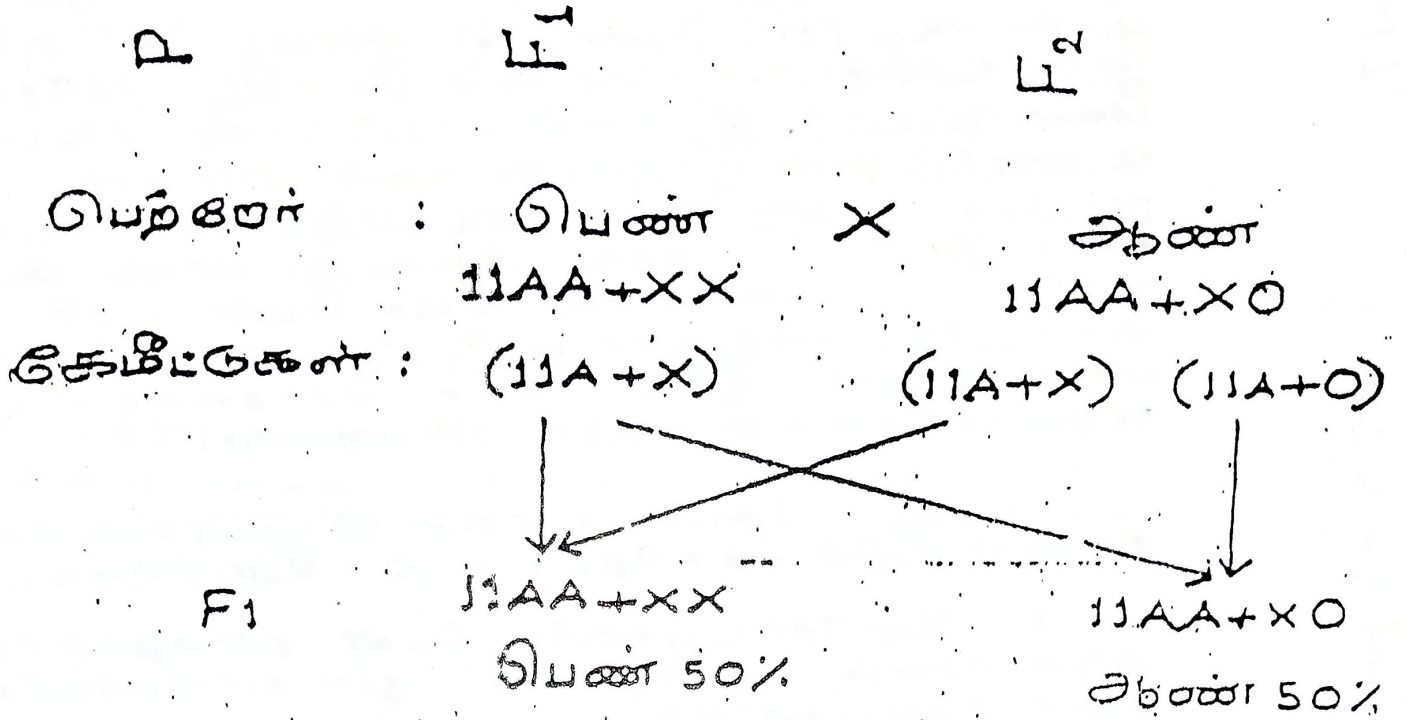 P F1 F2
பெற்றோர் : பெண் X ஆண்
11AA+XX 11AA+XO
கேமீட்டுகள் : (11A+X) (11A+X) (11A+O)
11AA+XX 11AA+XO
F1
பெண் 50% ஆண் 50%